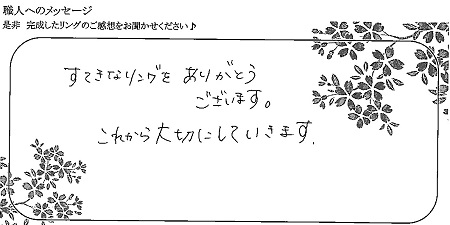 職人へのメッセージ
是非 完成したリングのご感想をお聞かせください♪
すてきなリングを ありがとう
ございます。
これから大切にしていきます.